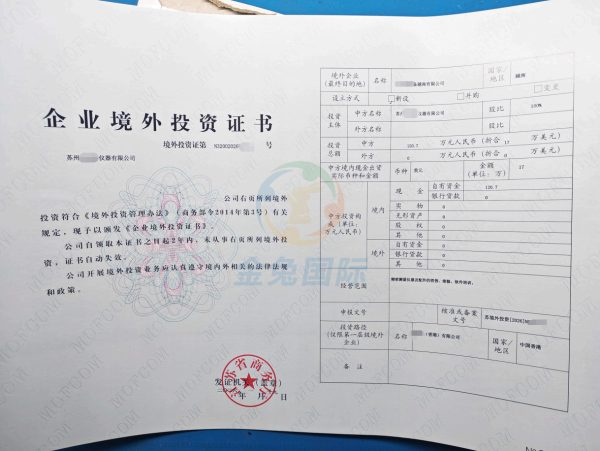 企业境外投资证书
境外投资证第 N32002020 号
苏州 仪器有限公司
公司右页所列境外
投资符合《境外投资管理办法》（商务部令2014年第3号）有关
规定，现予以颁发《企业境外投资证书》。
公司自领取本证书之日起2年内，未从事右页所列境外投
资，证书自动失效。
公司开展境外投资业务应认真遵守境内外相关的法律法规
和政策。
发证机关（盖章）
年 月 日
江苏省商务厅
境外企业
（最终目的地）
名称
越南有限公司
国家/
地区
越南
设立方式
新设
并购
变更
投资
主体
中方名称
仪器有限公司
股比
100%
外方名称
股比
投资
总额
中方
万元人民币（折合 17 万美元）
外方
0 万元人民币（折合 0 万美元）
中方境内现金出资
实际币种和金额
币种
美元
金额
（单位：万）
17
中方投资构
成（单位：
万元人民币）
境内
现金
自有资金
120.7
银行贷款
0
实物
0
无形资产
0
股权
0
其他
0
境外
自有资金
0
银行贷款
0
其他
0
经营范围
申报文号
核准或备案
文号
苏境外投资[2020]N
投资路径
（仅限第一层级境外
企业）
名称
（香港）有限公司
国家/
地区
中国香港
备注
金兔国际